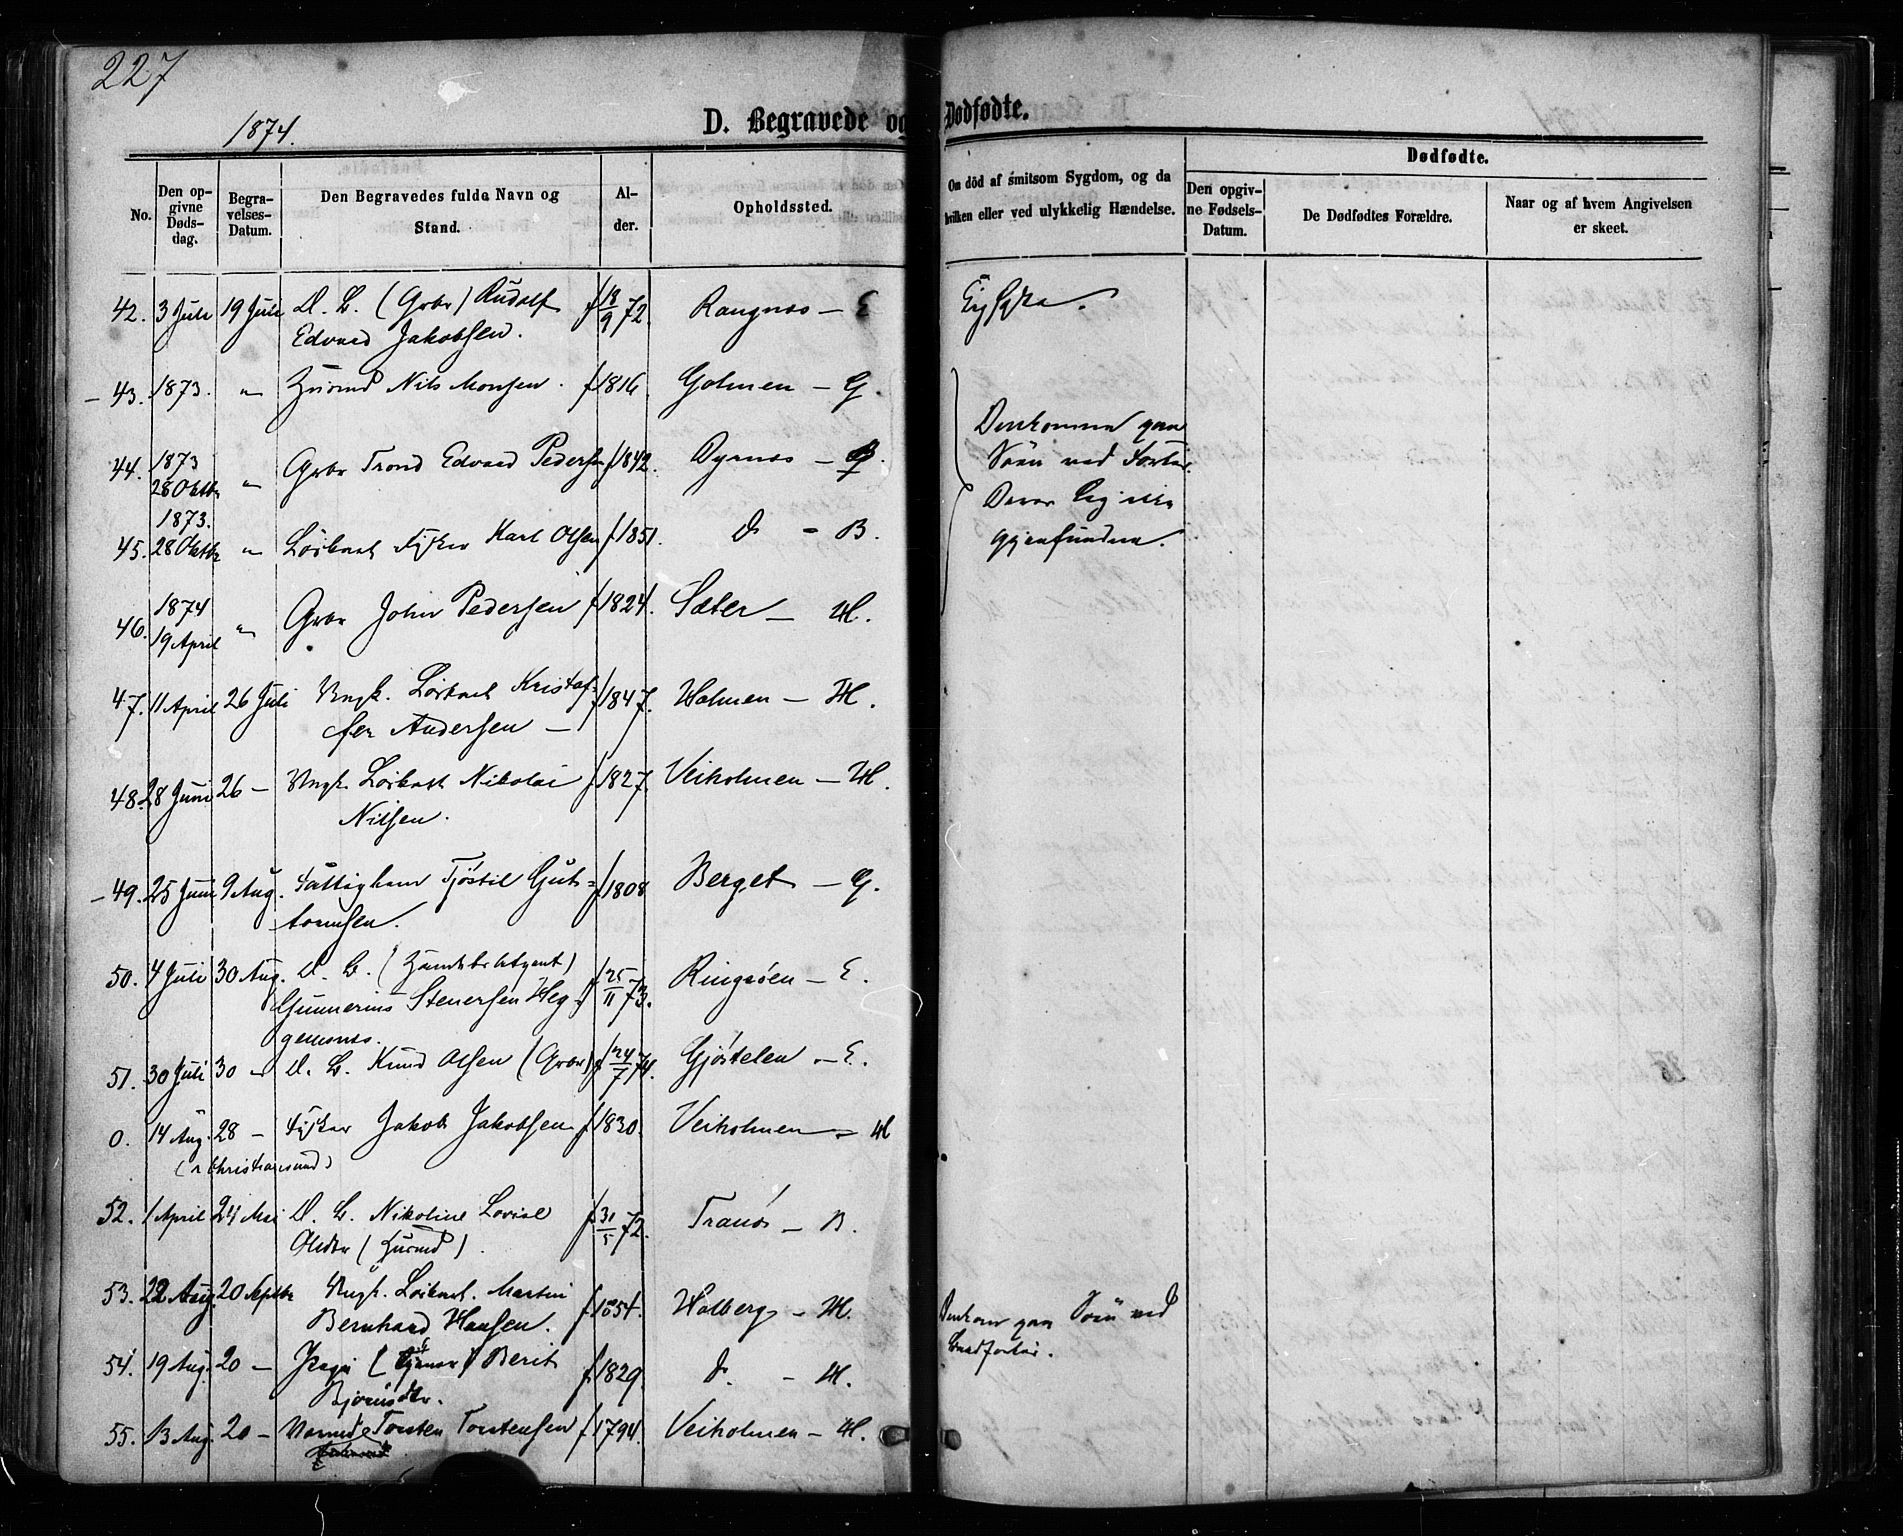 227
1874.
D. Begravede og Dødfødte.
No.
Den opgivne Døds-dag.
Begravelses-Datum.
Den Begravedes fulde Navn og Stand.
Alder.
Opholdssted.
Om död af smitsom Sygdom, og da hvilken eller ved ulykkelig Hændelse.
Dødfødte.
Den opgivne Fødsels-Datum.
De Dødfødtes Forældre.
Naar og af hvem Angivelsen er skeet.
42. 3 Juli 19 Juli D. B. (Grbr) Rudolf f 18/9 72. Rangnæs - E
Edvard Jakobsen.
43. 1873. " Nils Monsen. f 1816. Golmen - G.
44. 1873 28 Oktbr " Grbr Trond Edvard Pedersen f 1842. Dyrnæs - B
Omkommen paa
Söen ved
45. 1873. 28 Oktbr " Løskarl Fisker Karl Olsen f 1851. do - B.
gjenfunden.
46. 1874 19 April " Grbr John Pedersen f 1824. Sæter - H.
47. 11 April 26 Juli Ungk. Løskarl Kristof- f 1847. Holmen - H.
fer Andersen -
48. 28 Juni 26 - Ungk. Løskarl Nikolai f 1827. Veiholmen - H.
Nilsen.
49. 25 Juni 9 Aug. Fattiglem Tjöstil Gut- f 1808 Berget - G.
tormsen.
50. 4 Juli 30 Aug. D. B. ( f 25/11 73. Ringsöen - E.
Gunnerius Stenersen Heg-
gemsnes.
51. 30 Juli 30 - D. B. Knud Olsen (Grbr) f 24/7 74. Gjöstelen - E.
0. 14 Aug. 28 - Fisker Jakob Jakobsen f 1830. Veiholmen - H
(i Christiansund)
52. 1 April 24 Mai D. B. Nikoline Lovise f 31/5 72. Tranös - B.
Olsdtr (Husmd).
53. 22 Aug. 20 Septbr Ungk. Løskarl. Martin f 1854. Holberg - H.
Omkom paa Söen ved
Bernhard Hansen.
54. 19 Aug. 20 - Berit f 1829. do. - H.
Björnsdtr.
55. 13 Aug. 20 - Torsten Torstensen f 1794. Veiholmen - H.